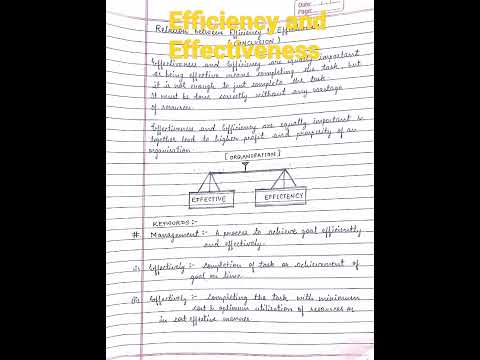 Date: / /
Page:
Efficieney and
Effectiveness
Relation between Efficiency & Effectiveness
(CONCLUSION)
Effectiveness and Efficiency are equally important
as being effective means completing the task but
it is not enough to just complete the task
It must be done correctly without any wastage
of resources
Effectiveness and Efficiency are equally important &
together lead to higher profit and prosperity of an
organisation
[ORGANISATION]
EFFECTIVE
EFFICIENCY
KEYWORDS:-
# Management :- A process to achieve goal efficiently
and effectively.
(i) Effectively :- completion of task or achievement of
goal on time
(ii) Effectively :- completing the task with minimum
cost & optimum utilization of resources or
in cost effective manner